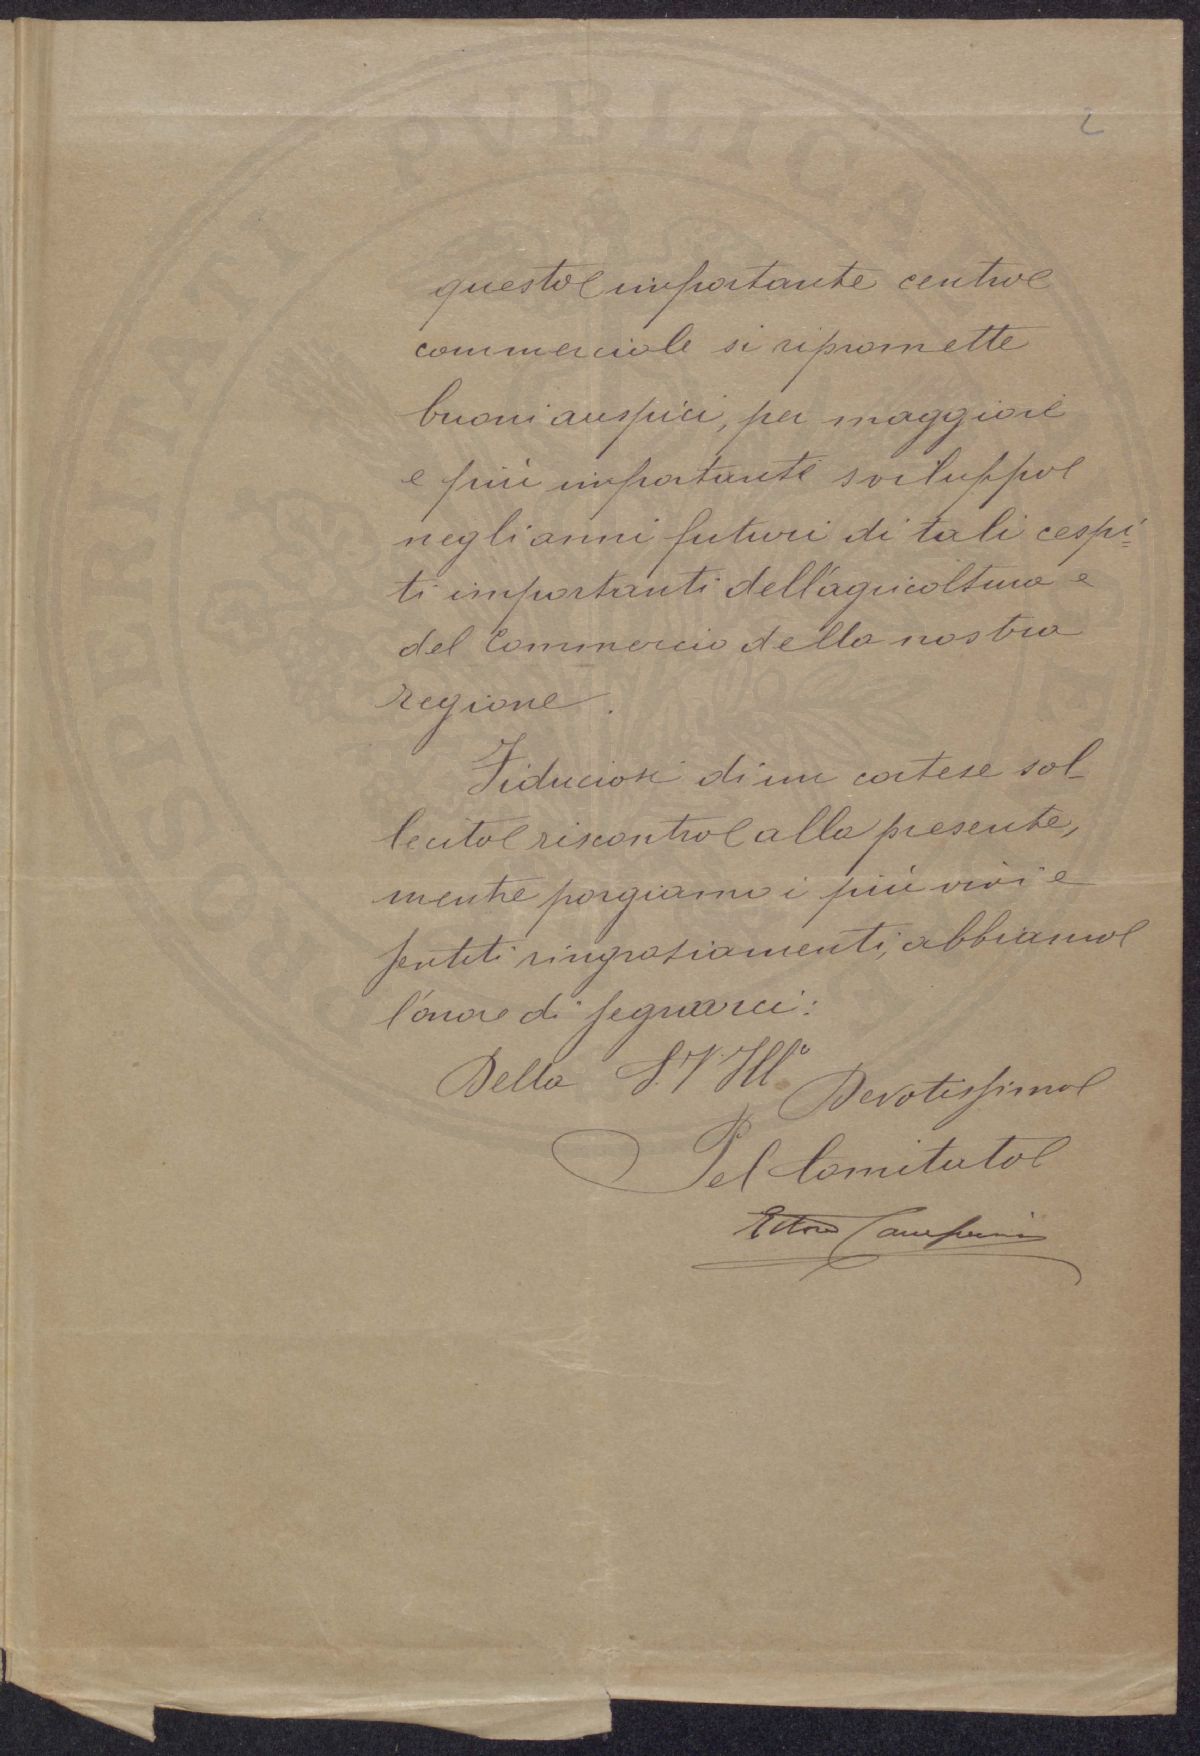 2
questo importante centro
commerciale si ripromette
buoni auspici, per maggiore
e più importante sviluppo
negli anni futuri di tali cespi=
ti importanti dell'agricoltura e
del Commercio della nostra
regione.
Fiduciosi di un cortese sol-
lecito riscontro alla presente,
mentre porgiamo i più vivi e
sentiti ringraziamenti, abbiamo
l'onore di segnarci:
Della S.V. Illª
Devotissimo
Pel Comitato
Ettore